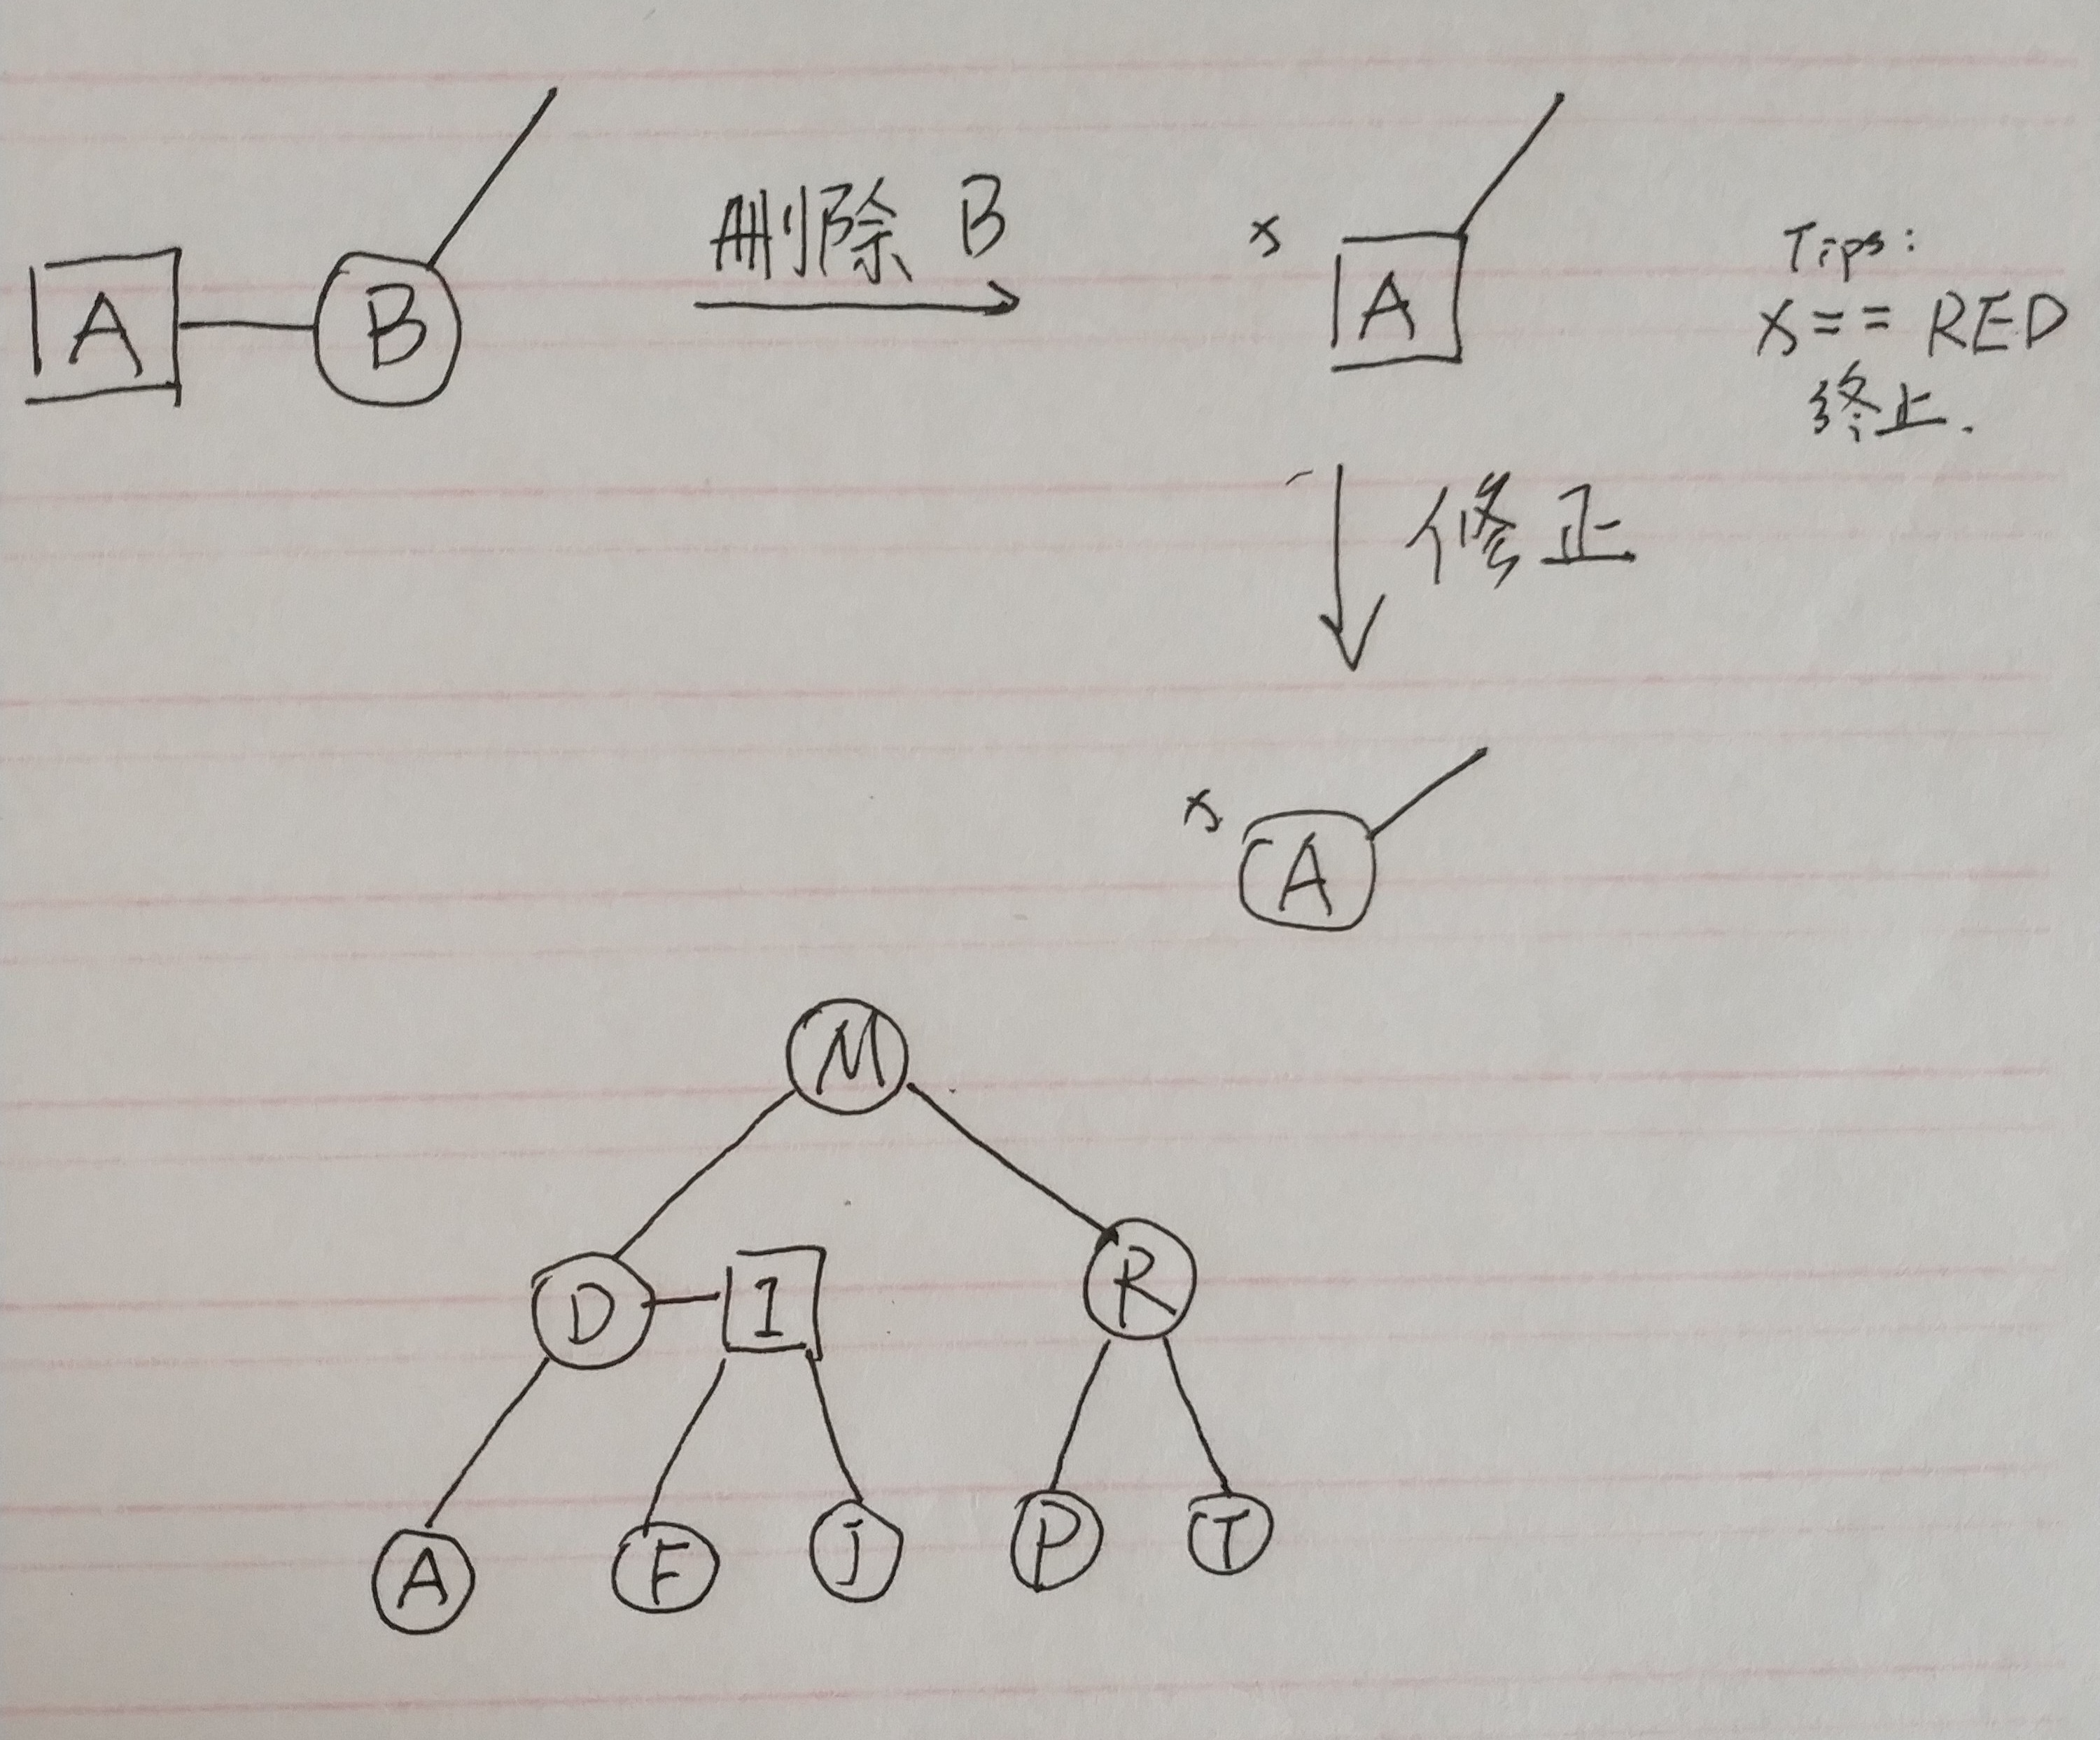 A B
删除 B
x A
Tips:
x == RED
终止.
修正
x A
M
D I R
A F J P T